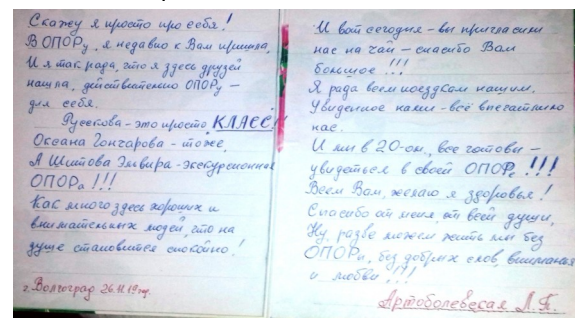 Скажу я просто про себя!
В ОПОРу, я недавно к Вам пришла,
И я так рада, что я здесь друзей
нашла, действительно ОПОРу –
для себя.
Русскова – это просто КЛАСС!
Оксана Гончарова – тоже,
А Шитова Эльвира – экскурсионная
ОПОРа!!!
Как много здесь хороших и
внимательных людей, что на
душе становится спокойно!
г. Волгоград 26.11.19 год.
И вот сегодня – вы пригласили
нас на чай – спасибо Вам
большое!!!
Я рада всем поездкам нашим,
Увиденное нами – всё впечатлило
нас.
И мы в 20-ом, все готовы –
увидеться в своей ОПОРе!!!
Всем Вам, желаю я здоровья!
Спасибо от меня, от всей души,
Ну, разве можем жить мы без
ОПОРы, без добрых слов, внимания
и любви!!!
Артоболевская Л.П.